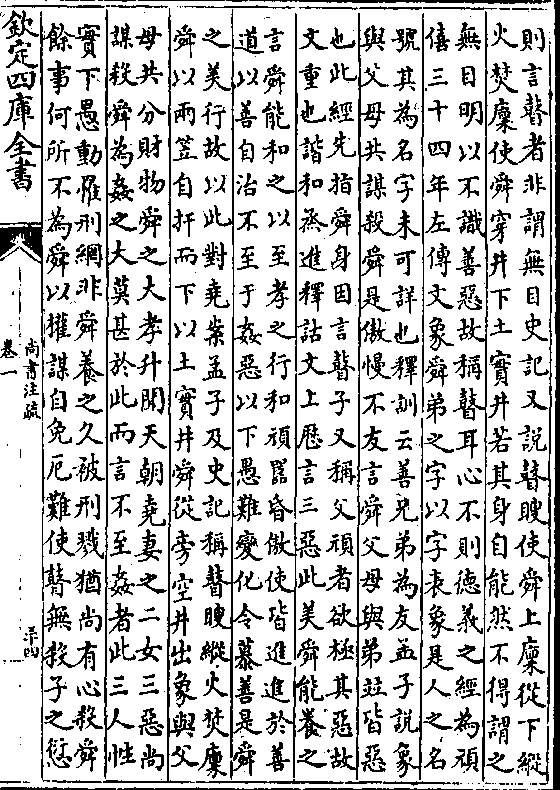 則言瞽者非謂無目史記又說瞽瞍使舜上廩從下縱
火焚廩使舜穿井下土實井若其身自能然不得謂之
無目明以不識善惡故稱瞽耳心不則德義之經為頑
僖三十四年左傳文象舜弟之字以字表象是人之名
號其為名字未可詳也釋訓云善兄弟為友孟子說象
與父母共謀殺舜是傲慢不友言舜父母與弟竝皆惡
也此經先指舜身因言瞽子又稱父頑者欲極其惡故
文重也諧和烝進釋詁文上歷言三惡此美舜能養之
言舜能和之以至孝之行和頑嚚昏傲使皆進進於善
道以善自治不至于姦惡以下愚難變化令慕善是舜
之美行故以此對堯案孟子及史記稱瞽瞍縱火焚廩
舜以兩笠自扞而下以土實井舜從旁空井出象與父
母共分財物舜之大孝升聞天朝堯妻之二女三惡尚
謀殺舜為姦之大莫甚於此而言不至姦者此三人性
實下愚動罹刑網非舜養之久被刑戮猶尚有心殺舜
餘事何所不為舜以權謀自免厄難使瞽無殺子之愆
欽定四庫全書
尚書注疏
卷一